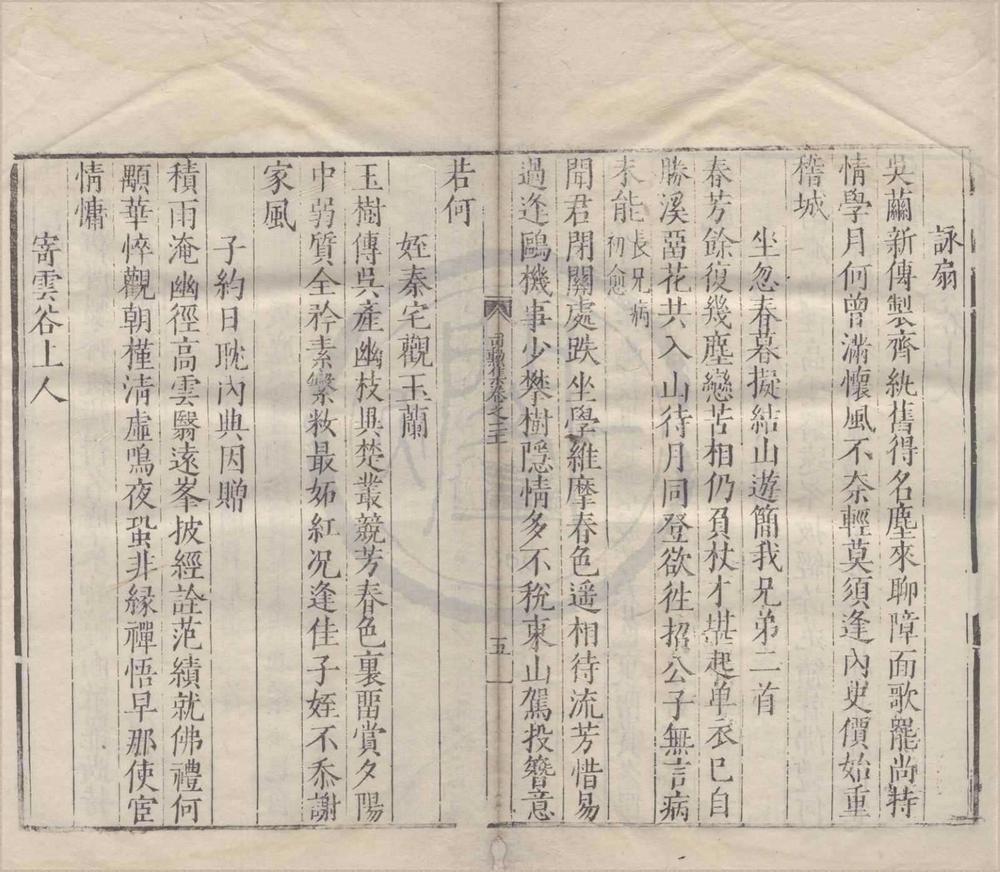 詠扇
吳䌷新傳製齊紈舊得名塵來聊障面歌罷尚持
情學月何曾滿懷風不奈輕莫須逢內史價始重
稽城
坐忽春暮擬結山遊簡我兄弟二首
春芳餘復幾塵戀苦相仍負杖才堪起單衣已自
勝溪畱花共入山待月同登欲徃招公子無言病
未能長兄病初愈
聞君閉關處趺坐學維摩春色遥相待流芳惜易
過逢鷗機事少攀樹隱情多不稅東山駕投簪意
若何
司勳集卷之三 五
姪秦宅觀玉蘭
玉樹傳吳產幽枝異楚叢競芳春色裏畱賞夕陽
中弱質全矜素繁敉最妬紅况逢佳子姪不忝謝
家風
子約日耽內典因贈
積雨淹幽徑高雲翳遠峯披經詮范績就佛禮何
顒華悴觀朝槿淸虛鳴夜蛩非緣禪悟早那使宦
情慵
寄雲谷上人